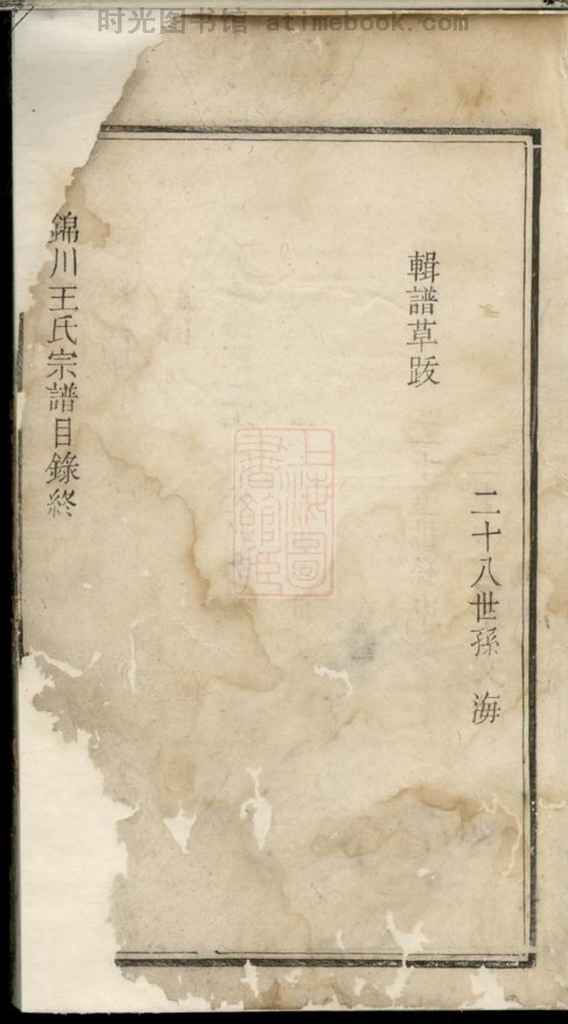 时光图书馆 atimebook.com
二十八世孫 海
輯譜草跋
錦川王氏宗譜目錄終
上海圖書館藏